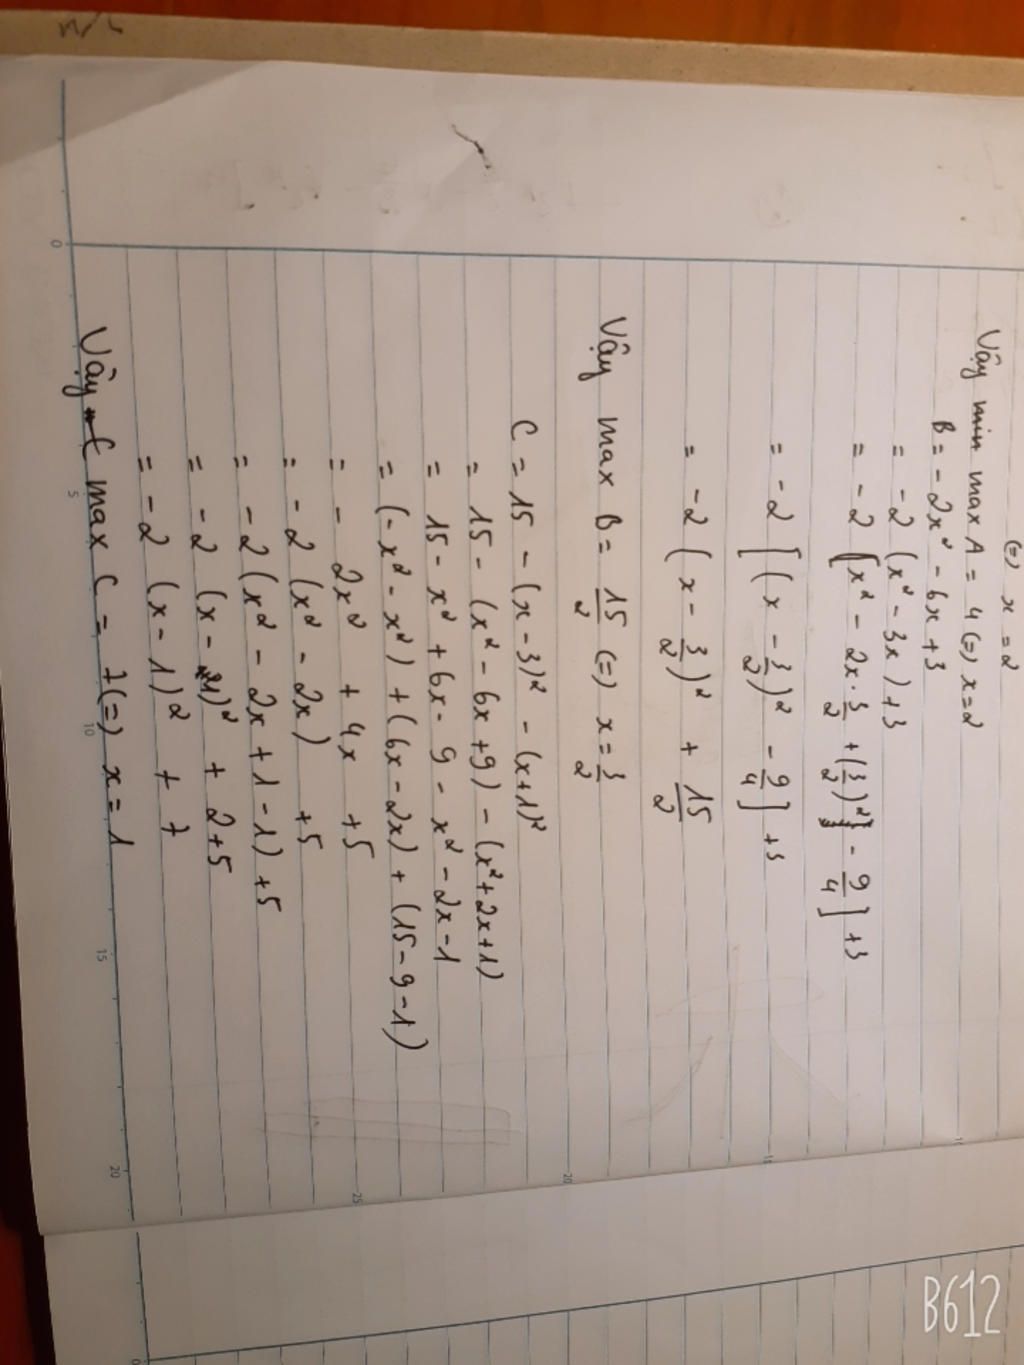 (=) x = 2
Vậy min max A = 4 (=) x = 2
B = - 2x² - 6x + 3
= - 2 (x² - 3x) + 3
= - 2 [x² - 2x. 3/2 + (3/2)²] - 9/4] + 3
= - 2 [(x - 3/2)² - 9/4] + 3
= - 2 (x - 3/2)² + 15/2
Vậy max B = 15/2 (=) x = 3/2
C = 15 - (x - 3)² - (x + 1)²
= 15 - (x² - 6x + 9) - (x² + 2x + 1)
= 15 - x² + 6x - 9 - x² - 2x - 1
= (- x² - x²) + (6x - 2x) + (15 - 9 - 1)
= - 2x² + 4x + 5
= - 2 (x² - 2x) + 5
= - 2 (x² - 2x + 1 - 1) + 5
= - 2 (x - 1)² + 2 + 5
= - 2 (x - 1)² + 7
Vậy max C = 7 (=) x = 1
0
5
10
15
20
15
20
25
B612